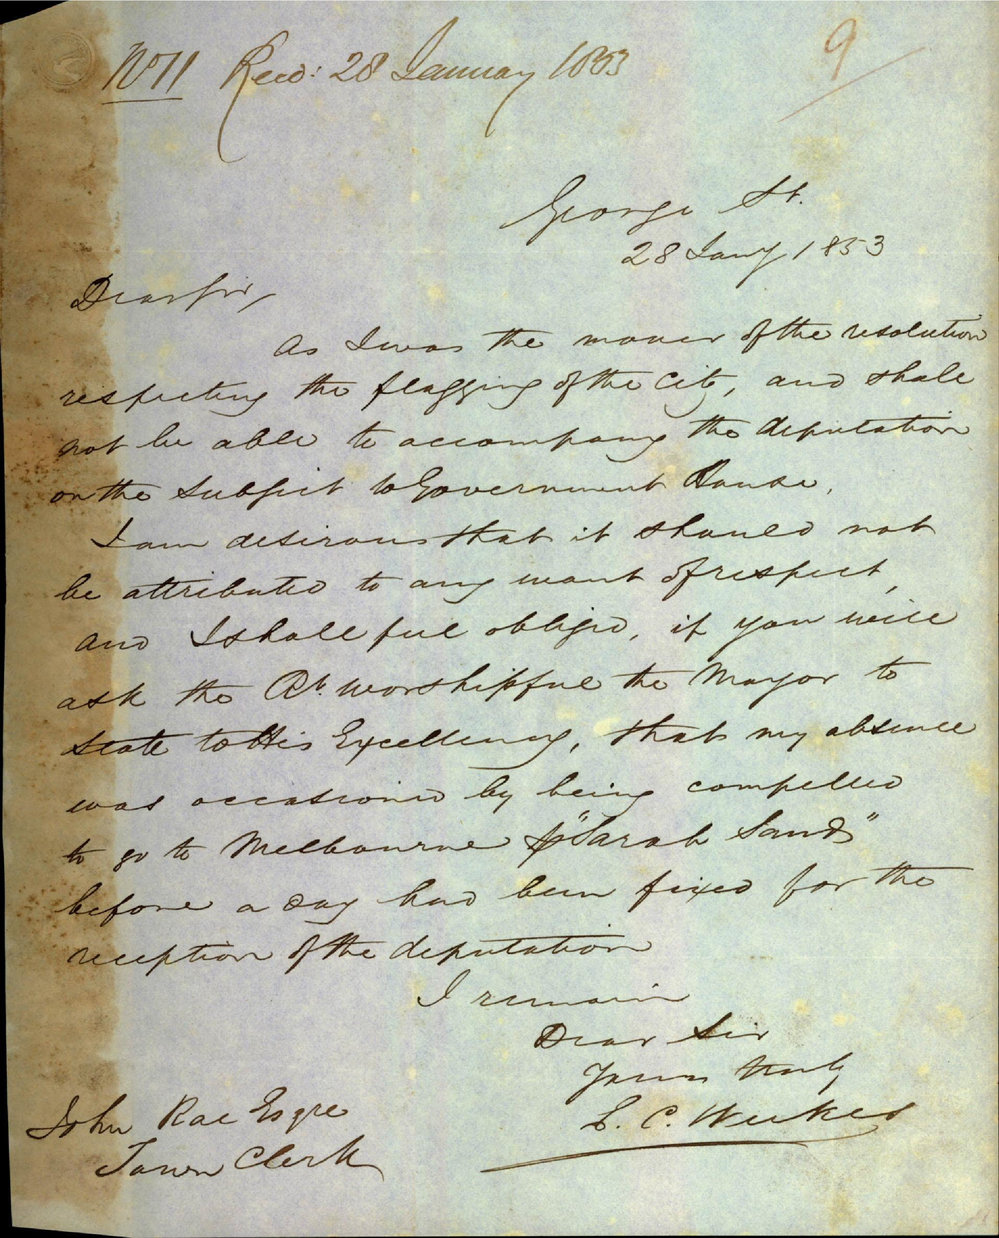 No 11 Recd: 28 January 1853
9
George St.
28 Jany 1853
Dear Sir,
As I was the mover of the resolution
respecting the flagging of the City, and shall
not be able to accompany the deputation
on the subject to Government House,
I am desirous that it should not
be attributed to any want of respect,
and I shall feel obliged, if you will
ask the Rt. Worshipful the Mayor to
state to His Excellency, that my absence
was occasioned by being compelled
to go to Melbourne "Sarah Sands"
before a day had been fixed for the
reception of the deputation
I remain
Dear Sir
Yours truly
E. C. Weekes
John Rae Esqre
Town Clerk